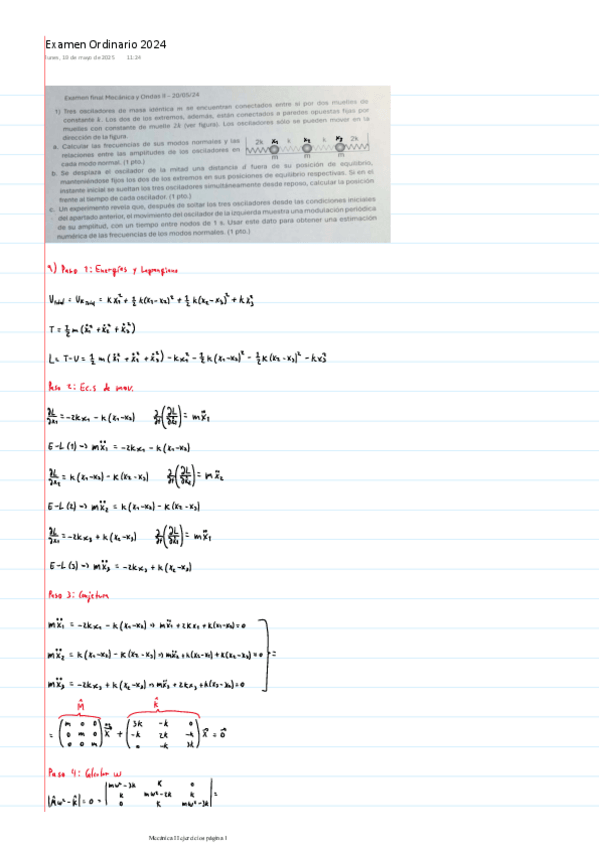 Examen Ordinario 2024
lunes, 19 de mayo de 2025 11:24
Examen final Mecánica y Ondas II - 20/05/24
1) Tres osciladores de masa idéntica m se encuentran conectados entre sí por dos muelles de
constante k. Los dos de los extremos, además, están conectados a paredes opuestas fijas por
muelles con constante de muelle 2k (ver figura). Los osciladores sólo se pueden mover en la
dirección de la figura.
a. Calcular las frecuencias de sus modos normales y las
relaciones entre las amplitudes de los osciladores en
cada modo normal. (1 pto.)
2k x₁ k x₂ k x₃ 2k
m m m
b. Se desplaza el oscilador de la mitad una distancia d fuera de su posición de equilibrio,
manteniéndose fijos los dos de los extremos en sus posiciones de equilibrio respectivas. Si en el
instante inicial se sueltan los tres osciladores simultáneamente desde reposo, calcular la posición
frente al tiempo de cada oscilador. (1 pto.)
c. Un experimento revela que, después de soltar los tres osciladores desde las condiciones iniciales
del apartado anterior, el movimiento del oscilador de la izquierda muestra una modulación periódica
de su amplitud, con un tiempo entre nodos de 1 s. Usar este dato para obtener una estimación
numérica de las frecuencias de los modos normales. (1 pto.)
a) Paso 1: Energías y Lagrangiana
= k x₁² + ½ k(x₁-x₂)² + ½ k(x₂-x₃)² + k x₃²
T = ½ m (ẋ₁² + ẋ₂² + ẋ₃²)
L = T-U = ½ m (ẋ₁² + ẋ₂² + ẋ₃²) - kx₁² - ½ k(x₁-x₂)² - ½ k(x₂-x₃)² - kx₃²
Paso 2: Ec.s de mov.
∂L/∂x₁ = -2kx₁ - k(x₁-x₂) ∂/∂t(∂L/∂ẋ₁) = mẍ₁
E-L (1) → mẍ₁ = -2kx₁ - k(x₁-x₂)
∂L/∂x₂ = k(x₁-x₂) - k(x₂-x₃) ∂/∂t(∂L/∂ẋ₂) = mẍ₂
E-L (2) → mẍ₂ = k(x₁-x₂) - k(x₂-x₃)
= -2kx₃ + k(x₂-x₃)
E-L (3) → mẍ₃ = -2kx₃ + k(x₂-x₃)
Paso 3: Conjetura
mẍ₁ = -2kx₁ - k(x₁-x₂) → mẍ₁ + 2kx₁ + k(x₁-x₂) = 0
mẍ₂ = k(x₁-x₂) - k(x₂-x₃) → mẍ₂ + k(x₂-x₁) + k(x₂-x₃) = 0 =
mẍ₃ = -2kx₃ + k(x₂-x₃) → mẍ₃ + 2kx₃ + k(x₃-x₂) = 0
M̂ k̂
m 0 0 3k -k 0
= 0 m 0 ẍ + -k 2k -k x⃗ = 0⃗
0 0 m 0 -k 3k
Paso 4: Calcular ω
mω²-3k k 0
|M̂ω²-k̂| = 0 = k mω²-2k k =
0 k mω²-3k
Mecánica II ejercicios página 1